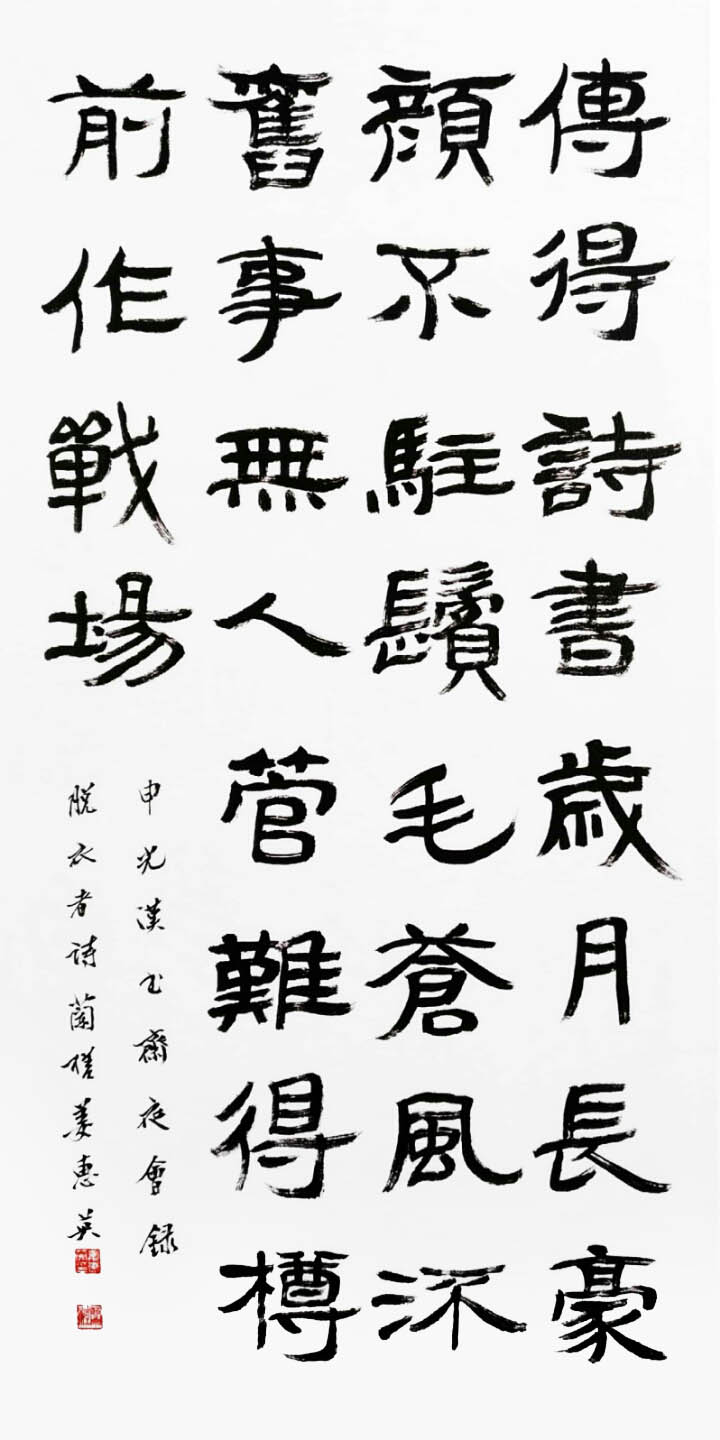 傳得詩書歲月長豪
顔不駐鬢毛蒼風流
舊事無人管難得樽
前作戰場
申光漢書齋夜會録
脱衣者詩蘭姜惠英